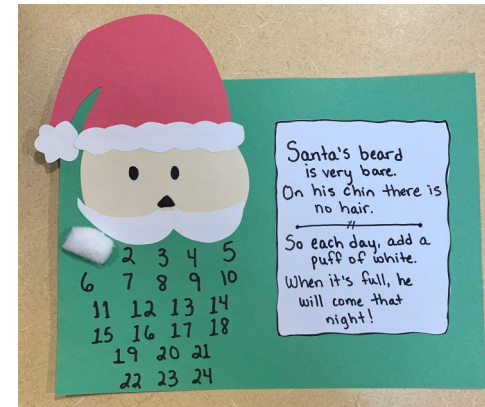 Santa's beard
is very bare.
On his chin there is
no hair.
So each day, add a
puff of white.
When it's full, he
will come that
night!
2 3 4 5
6 7 8 9 10
11 12 13 14
15 16 17 18
19 20 21
22 23 24